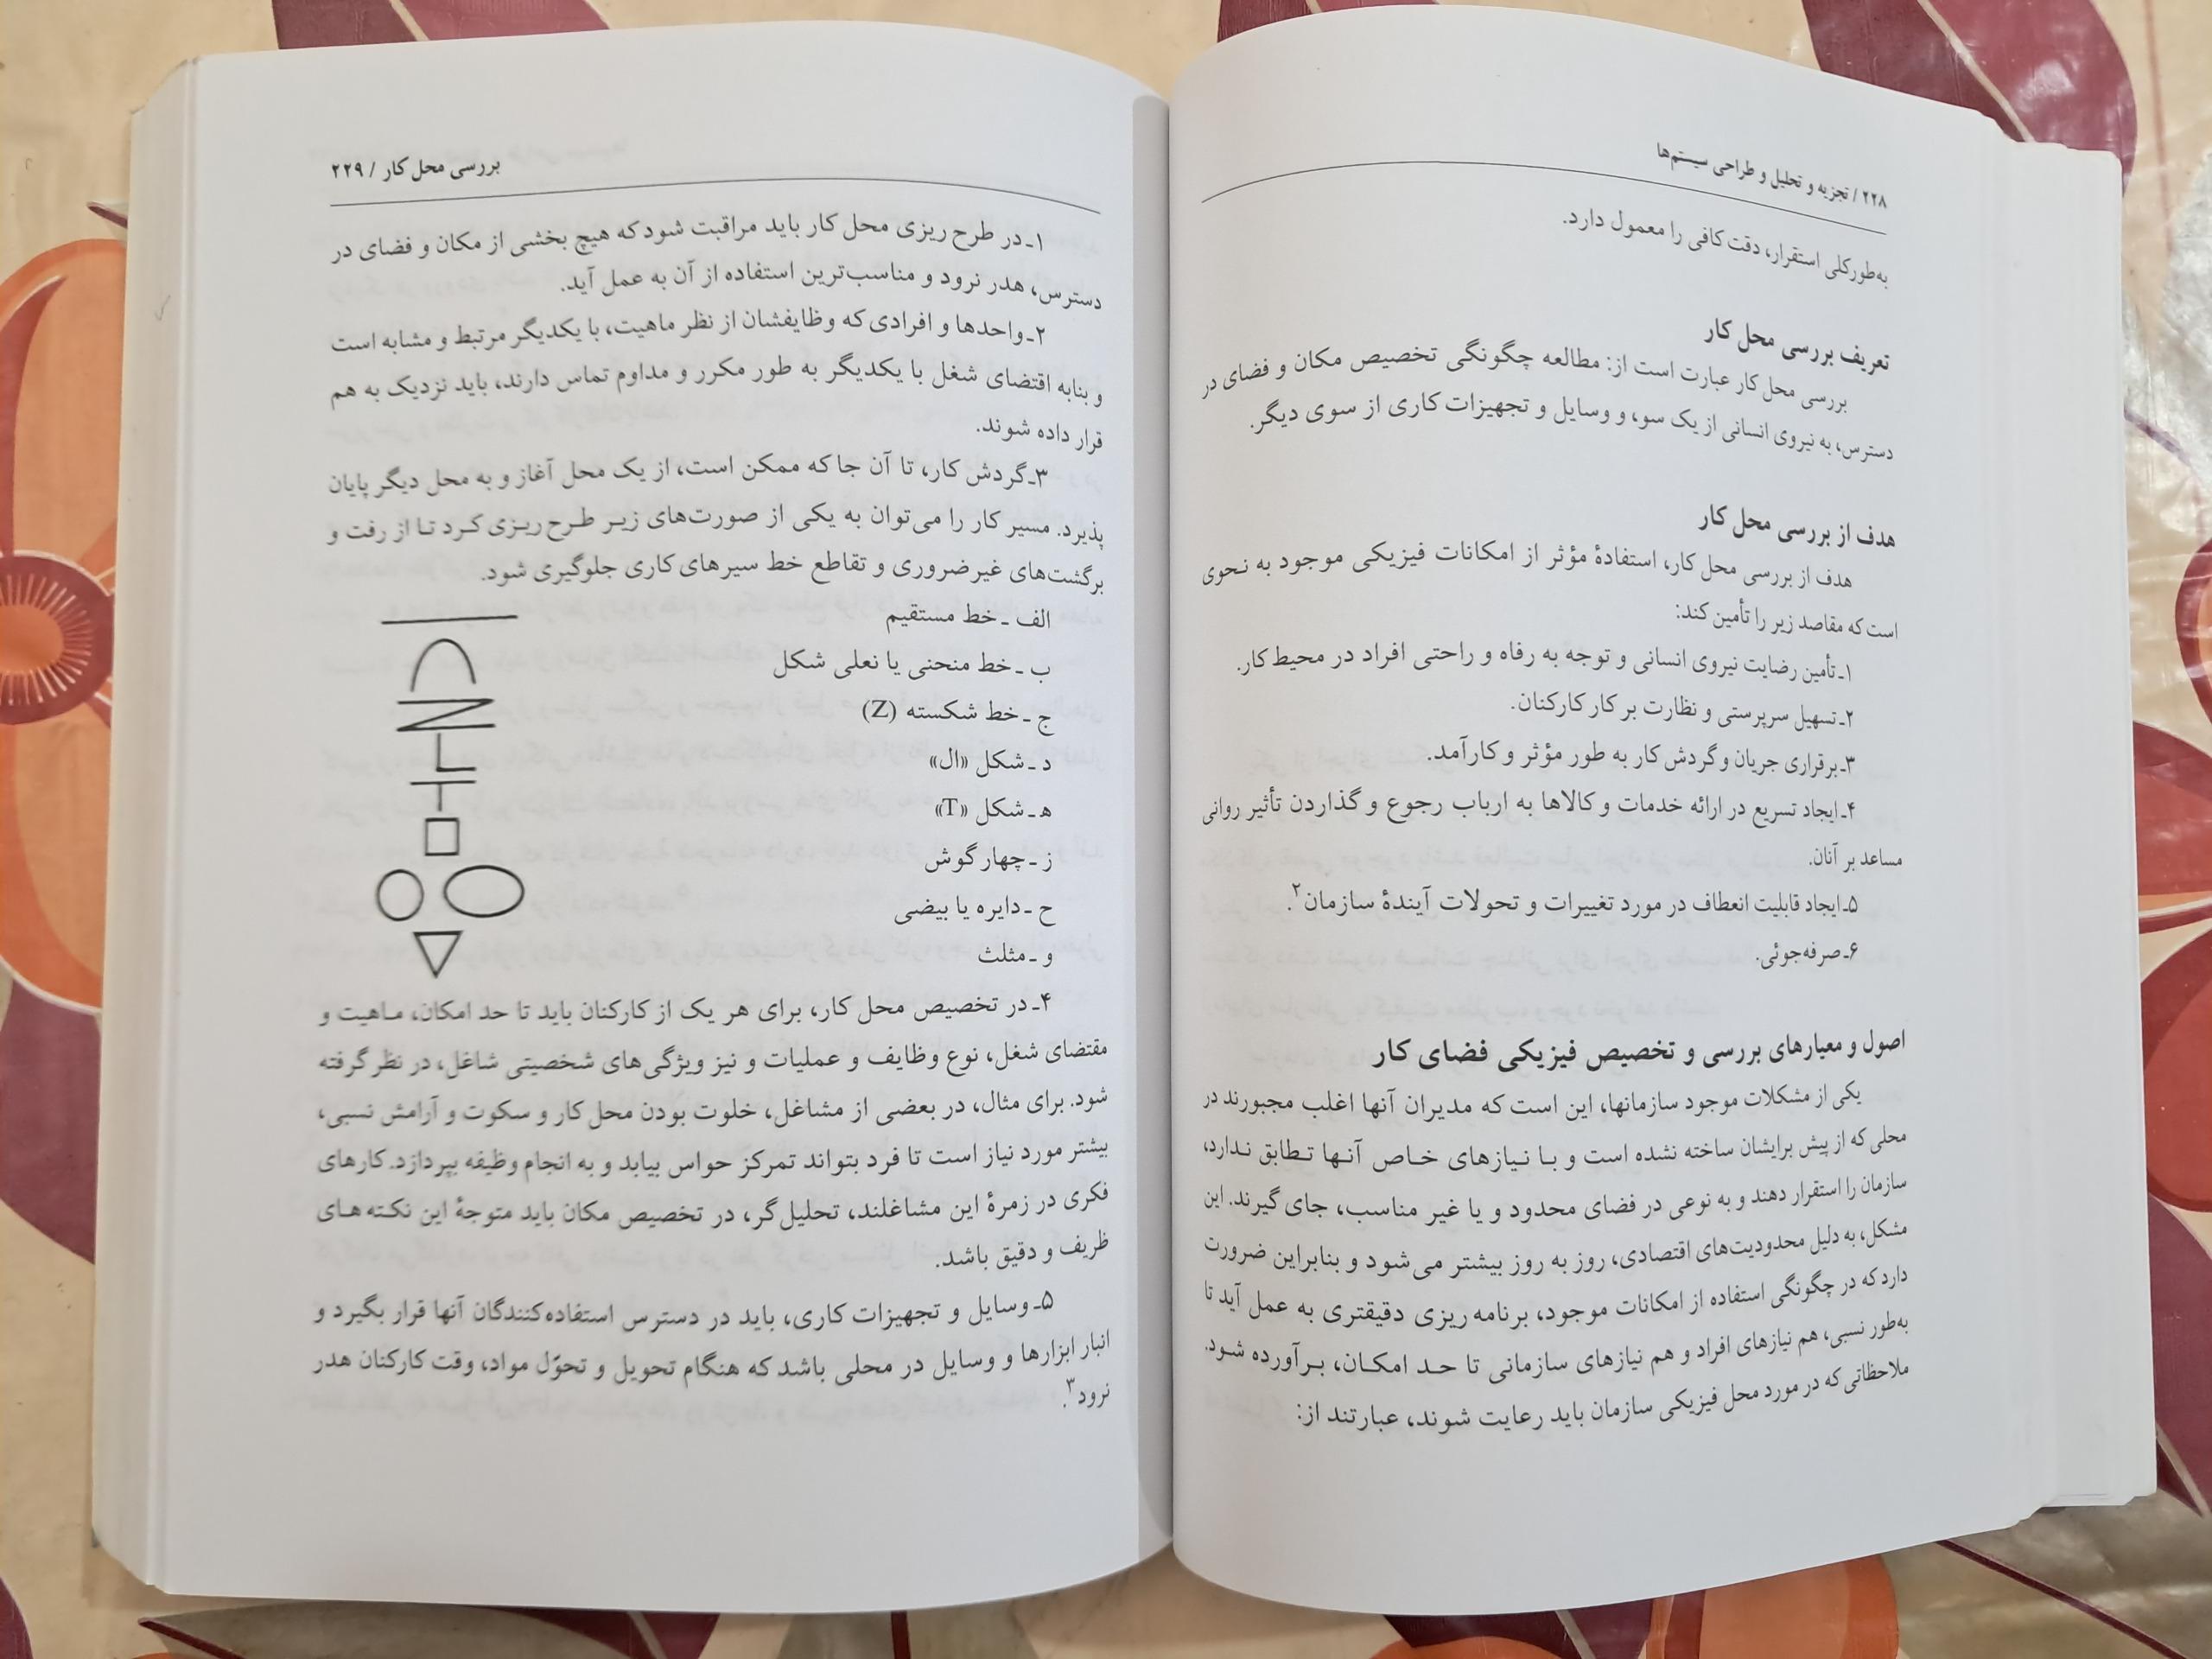 ۲۲۸ / تجزیه و تحلیل و طراحی سیستم‌ها
به‌طورکلی استقرار، دقت کافی را معمول دارد.
تعریف بررسی محل کار
بررسی محل کار عبارت است از: مطالعه چگونگی تخصیص مکان و فضای در
دسترس، به نیروی انسانی از یک سو، و وسایل و تجهیزات کاری از سوی دیگر.
هدف از بررسی محل کار
هدف از بررسی محل کار، استفادهٔ مؤثر از امکانات فیزیکی موجود به نحوی
است که مقاصد زیر را تأمین کند:
۱ـ تأمین رضایت نیروی انسانی و توجه به رفاه و راحتی افراد در محیط کار.
۲ـ تسهیل سرپرستی و نظارت بر کار کارکنان.
۳ـ برقراری جریان و گردش کار به طور مؤثر و کارآمد.
۴ـ ایجاد تسریع در ارائه خدمات و کالاها به ارباب رجوع و گذاردن تأثیر روانی
مساعد بر آنان.
۵ـ ایجاد قابلیت انعطاف در مورد تغییرات و تحولات آیندهٔ سازمان۲.
۶ـ صرفه‌جوئی.
اصول و معیارهای بررسی و تخصیص فیزیکی فضای کار
یکی از مشکلات موجود سازمانها، این است که مدیران آنها اغلب مجبورند در
محلی که از پیش برایشان ساخته نشده است و بـا نـیازهای خـاص آنـها تـطابق نـدارد،
سازمان را استقرار دهند و به نوعی در فضای محدود و یا غیر مناسب، جای گیرند. این
مشکل، به دلیل محدودیت‌های اقتصادی، روز به روز بیشتر می‌شود و بنابراین ضرورت
دارد که در چگونگی استفاده از امکانات موجود، برنامه ریزی دقیقتری به عمل آید تا
به‌طور نسبی، هم نیازهای افراد و هم نیازهای سازمانی تا حـد امکـان، بـرآورده شـود.
ملاحظاتی که در مورد محل فیزیکی سازمان باید رعایت شوند، عبارتند از:
بررسی محل کار / ۲۲۹
۱ـ در طرح ریزی محل کار باید مراقبت شود که هیچ بخشی از مکان و فضای در
دسترس، هدر نرود و مناسب‌ترین استفاده از آن به عمل آید.
۲ـ واحدها و افرادی که وظایفشان از نظر ماهیت، با یکدیگر مرتبط و مشابه است
و بنابه اقتضای شغل با یکدیگر به طور مکرر و مداوم تماس دارند، باید نزدیک به هم
قرار داده شوند.
۳ـ گردش کار، تا آن جا که ممکن است، از یک محل آغاز و به محل دیگر پایان
پذیرد. مسیر کار را می‌توان به یکی از صورت‌های زیـر طـرح ریـزی کـرد تـا از رفت و
برگشت‌های غیرضروری و تقاطع خط سیرهای کاری جلوگیری شود.
الف ـ خط مستقیم
ب ـ خط منحنی یا نعلی شکل
ج ـ خط شکسته (Z)
د ـ شکل «ال»
ه ـ شکل «T»
ز ـ چهار گوش
ح ـ دایره یا بیضی
و ـ مثلث
۴ـ در تخصیص محل کار، برای هر یک از کارکنان باید تا حد امکان، مـاهیت و
مقتضای شغل، نوع وظایف و عملیات و نیز ویژگی‌های شخصیتی شاغل، در نظر گرفته
شود. برای مثال، در بعضی از مشاغل، خلوت بودن محل کار و سکوت و آرامش نسبی،
بیشتر مورد نیاز است تا فرد بتواند تمرکز حواس بیابد و به انجام وظیفه بپردازد. کارهای
فکری در زمرهٔ این مشاغلند، تحلیل‌گر، در تخصیص مکان باید متوجهٔ این نکـته هـای
ظریف و دقیق باشد.
۵ـ وسایل و تجهیزات کاری، باید در دسترس استفاده‌کنندگان آنها قرار بگیرد و
انبار ابزارها و وسایل در محلی باشد که هنگام تحویل و تحوّل مواد، وقت کارکنان هدر
نرود۳.